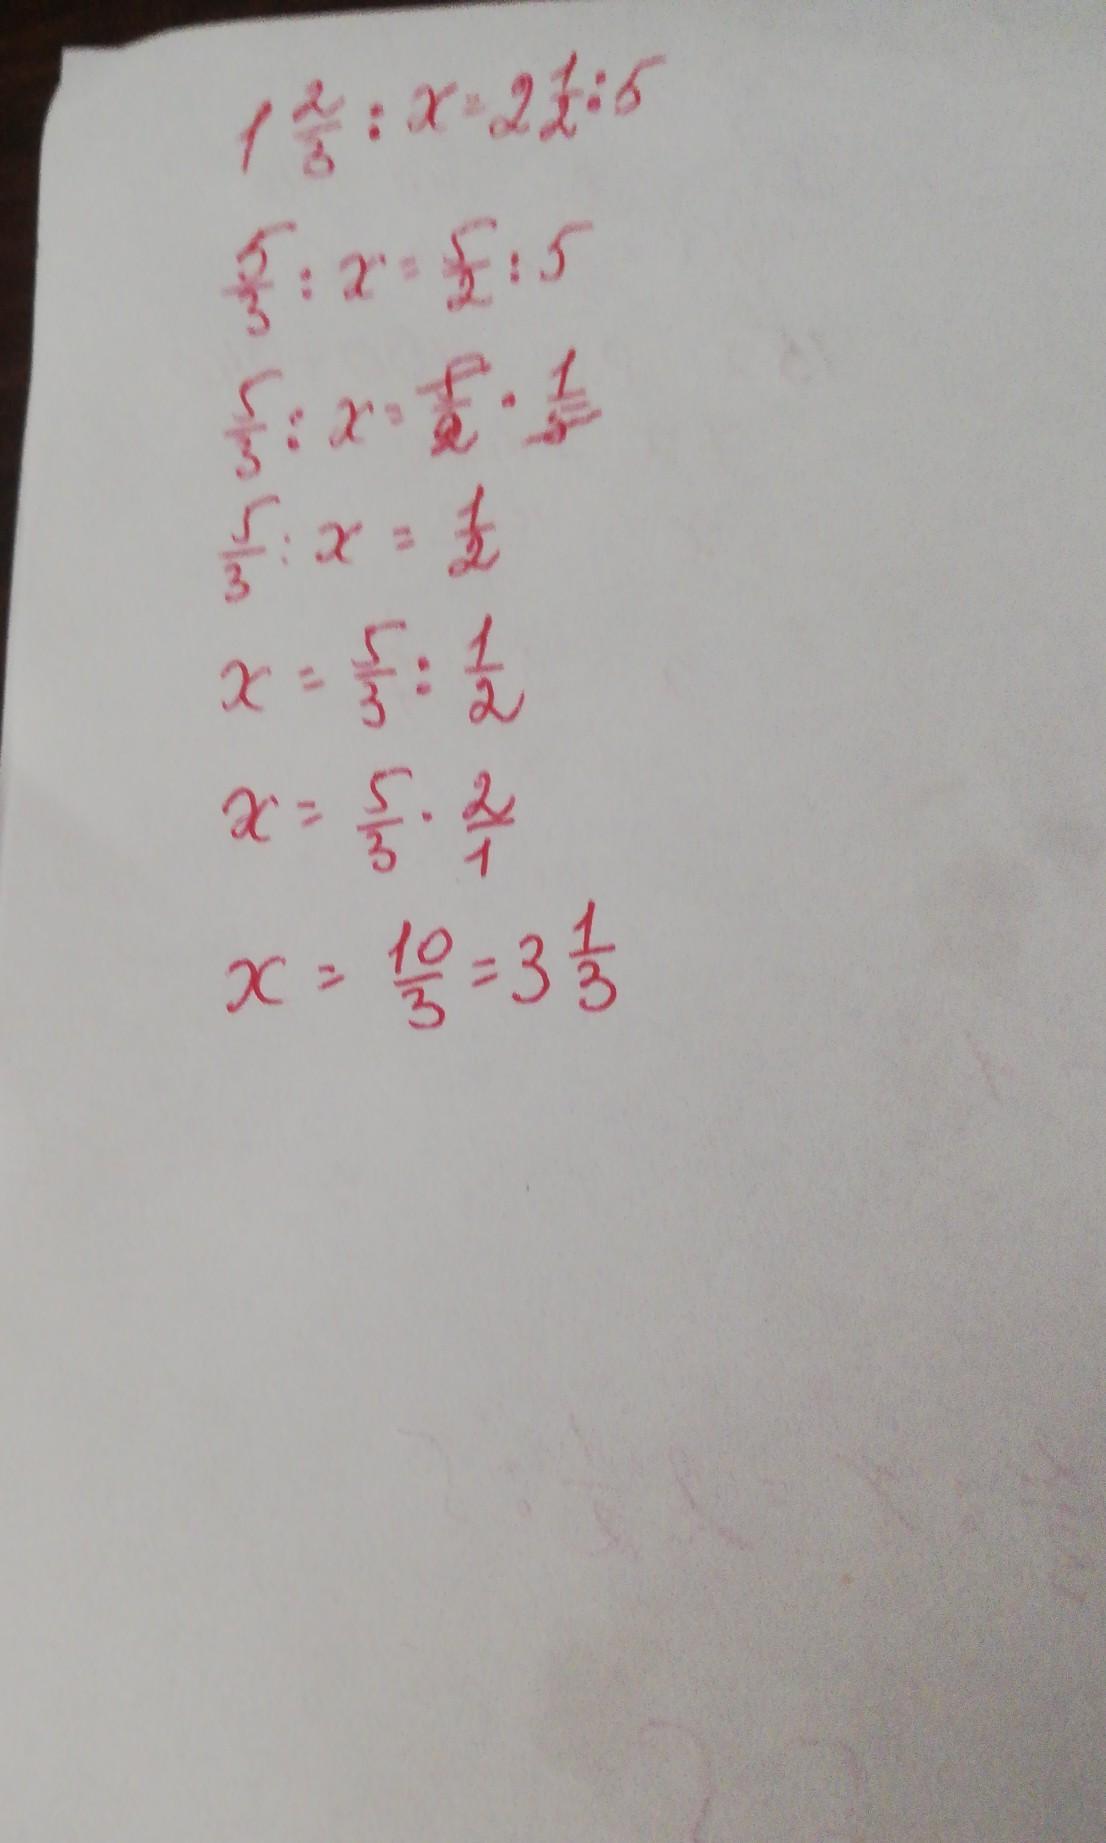 1 2/3 : x = 2 1/2 : 5
5/3 : x = 5/2 : 5
5/3 : x = 5/2 · 1/5
5/3 : x = 1/2
x = 5/3 : 1/2
x = 5/3 · 2/1
x = 10/3 = 3 1/3